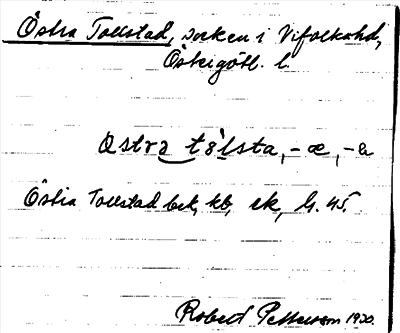 Östra Tollstad, socken i Vifolkahd,
Östergötl. l.
östra tólsta, -æ, -a
Östra Tollstad bek, kb, sk, h. 45.
Robert Pettersson 1920.